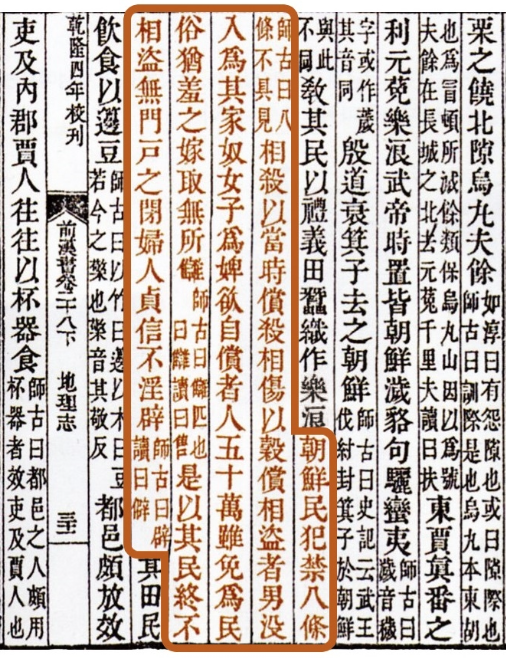 栗之饒北隙烏丸夫餘如淳曰有怨隙也或曰隙際也師古曰訓際是也烏丸本東胡
也爲冒頓所滅餘類保烏丸山因以爲號夫餘在長城之北去元菟千里夫讀曰扶東賈真番之
利元菟樂浪武帝時置皆朝鮮濊貉句驪蠻夷師古曰濊音穢
字或作薉其音同殷道衰箕子去之朝鮮師古曰史記云武王伐紂封箕子於朝鮮
與此不同敎其民以禮義田蠶織作樂浪朝鮮民犯禁八條
師古曰八條不具見相殺以當時償殺相傷以穀償相盜者男沒
入爲其家奴女子爲婢欲自償者人五十萬雖免爲民
俗猶羞之嫁取無所讎師古曰讎匹也曰讎讀曰售是以其民終不
相盜無門戶之閉婦人貞信不淫辟師古曰辟讀曰僻其田民
飲食以籩豆師古曰以竹曰籩以木曰豆若今之檠也檠音其敬反都邑頗放效
乾隆四年校刊 前漢書卷二十八下 地理志
吏及內郡賈人往往以杯器食師古曰都邑之人頗用杯器者效吏及賈人也